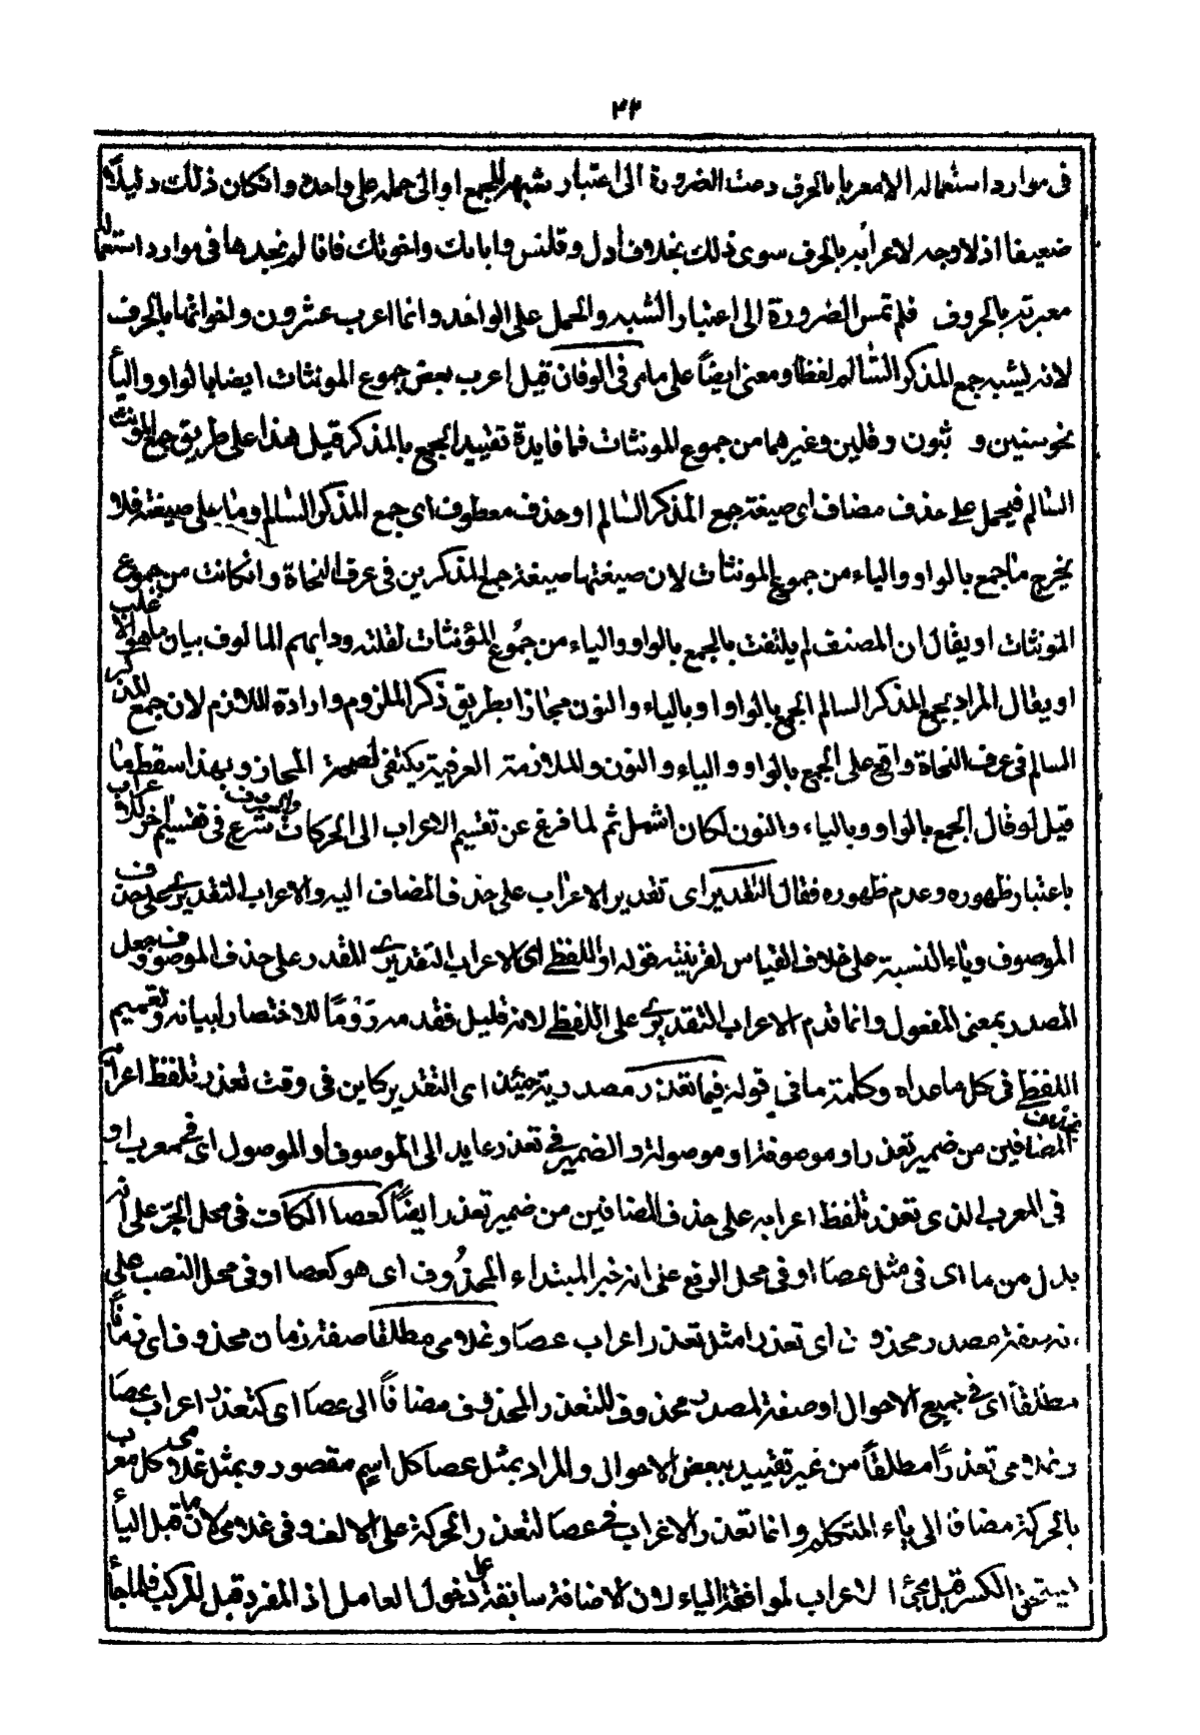 ٣٣
فى موارد استعماله الا معربا بالحرف دعت الضرورة الى اعتبار شبهه للجمع او الى حمله على واحده وانكان ذلك دليلًا
ضعيفا اذ لا وجه لاعرابه بالحرف سوى ذلك بخلاف ادل وقلنس واباءك واخوتك فانا لم نجدها فى موارد استعماله
معربة بالحروف فلم تمس الضرورة الى اعتبار الشبه والحمل على الواحد وانما اعرب عشرون واخواتها بالحرف
لانه يشبه جمع المذكر السالم لفظا ومعنى ايضاً على ما مر فى الو فان قيل اعرب بعض جموع المونثات ايضا بالواو والياء
نحو سنين و ثبون وقلين وغيرهما من جموع المونثات فما فايدة تقييد الجمع بالمذكر قيل هذا على طريق جمع المونث
السالم فيحمل على حذف مضاف اى صيغة جمع المذكر السالم او حذف معطوف اى جمع المذكر السالم وما على صيغته فلا
يخرج ما جمع بالواو والياء من جموع المونثات لان صيغتها صيغة جمع المذكرين فى عرف النحاة وانكانت من جموع
المونثات او يقال ان المصنف لم يلتفت بالجمع بالواو والياء من جموع المؤنثات لقلته ودابهم المالوف بيان ما هو الاغلب
او يقال المراد بجمع المذكر السالم الجمع بالواو او بالياء والنون مجازا بطريق ذكر الملزوم وارادة اللازم لان جمع المذكر
السالم فى عرف النحاة واقع على الجمع بالواو والياء والنون والملازمة العرفية يكتفى لصحة المجاز وبهذا سقط ما
قيل لو قال الجمع بالواو وبالياء والنون لكان اشمل ثم لما فرغ عن تقسيم الاعراب الى الحركات والحروف شرع فى تقسيم اخر للاعراب
باعتبار ظهوره وعدم ظهوره فقال التقدير اى تقدير الاعراب على حذف المضاف اليه والاعراب التقديرى على حذف
الموصوف وياء النسبة على خلاف القياس لقرينة قوله او اللفظى اى الاعراب التقديرى المقدر على حذف الموصوف وجعل
المصدر بمعنى المفعول وانما قدم الاعراب التقديرى على اللفظى لانه قليل فقدمه روما للاختصار لبيانه وتعميم
اللفظى فى كل ما عداه وكلمة ما فى قوله فيما تعذر مصدرية حينئذ اى التقدير كاين فى وقت تعذر تلفظ اعرابه
بحذف المضافين من ضمير تعذر او موصوفة او موصولة والضمير فى تعذر عايد الى الموصوف او الموصول اى فى معرب او
فى المعرب الذى تعذر تلفظ اعرابه على حذف المضافين من ضمير تعذر ايضًا كعصا الكاف فى محل الجر على انه
بدل من ما اى فى مثل عصا او فى محل الرفع على انه خبر المبتداء المحذوف اى هو كعصا او فى محل النصب على
انه صفة مصدر محذوف اى تعذرا مثل تعذر اعراب عصا وغلامى مطلقا صفة زمان محذوف اى زمانًا
مطلقاً اى فى جميع الاحوال او صفة لمصدر محذوف للتعذر المحذوف مضافاً الى عصا اى كتعذر اعراب عصا
وغلامى تعذرًا مطلقاً من غير تقييد ببعض الاحوال والمراد بمثل عصا كل اسم مقصور وبمثل غلامى كل معرب
بالحركة مضاف الى ياء المتكلم وانما تعذر الاعراب فى عصا لتعذر الحركة على الالف وفى غلامى لان ما قبل الياء
يستحق الكسر قبل مجئ الاعراب لموافقة الياء لان الاضافة سابقة على دخول العامل اذ المفرد قبل المركب فلما جاء